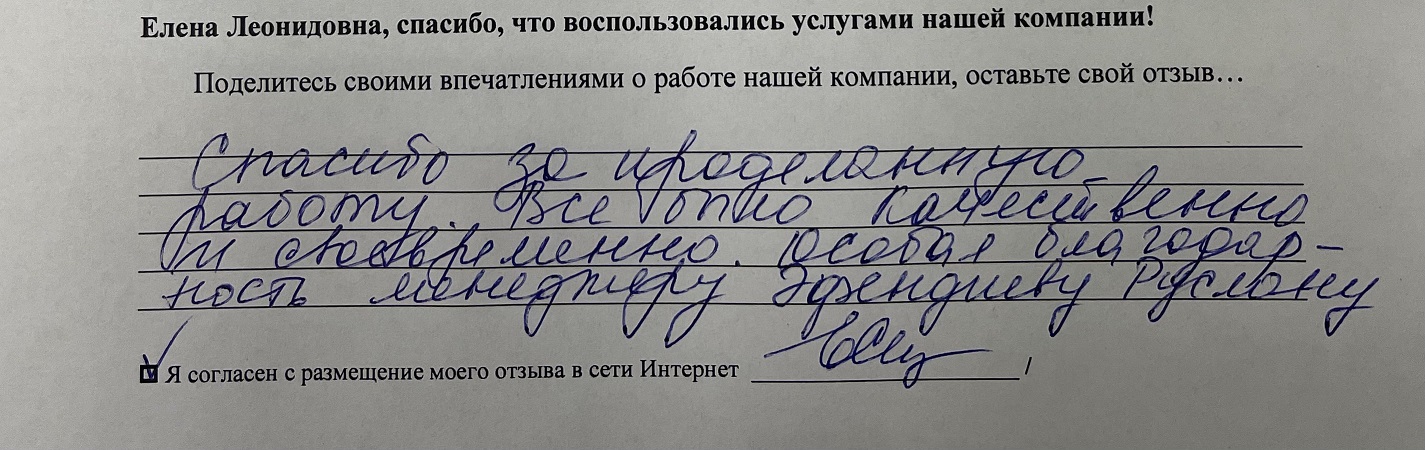 Елена Леонидовна, спасибо, что воспользовались услугами нашей компании!
Поделитесь своими впечатлениями о работе нашей компании, оставьте свой отзыв…
Спасибо за проделанную
работу. Все было качественно
и своевременно. Особая благодар-
ность менеджеру Эфендиеву Руслану
Я согласен с размещение моего отзыва в сети Интернет /